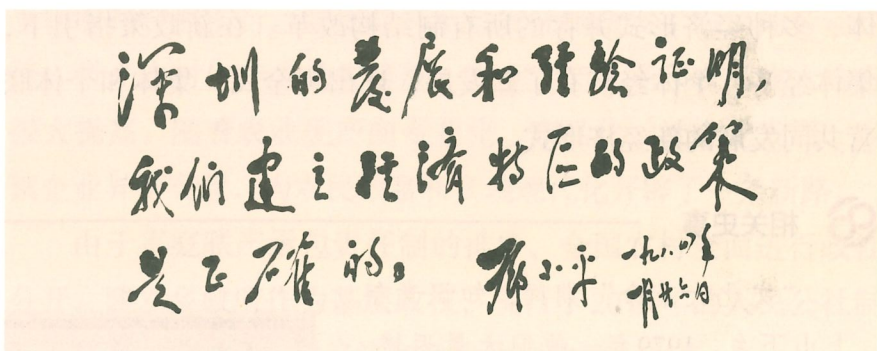 深圳的发展和经验证明，
我们建立经济特区的政策
是正确的。
邓小平
一九八四年
一月廿六日
相关史事